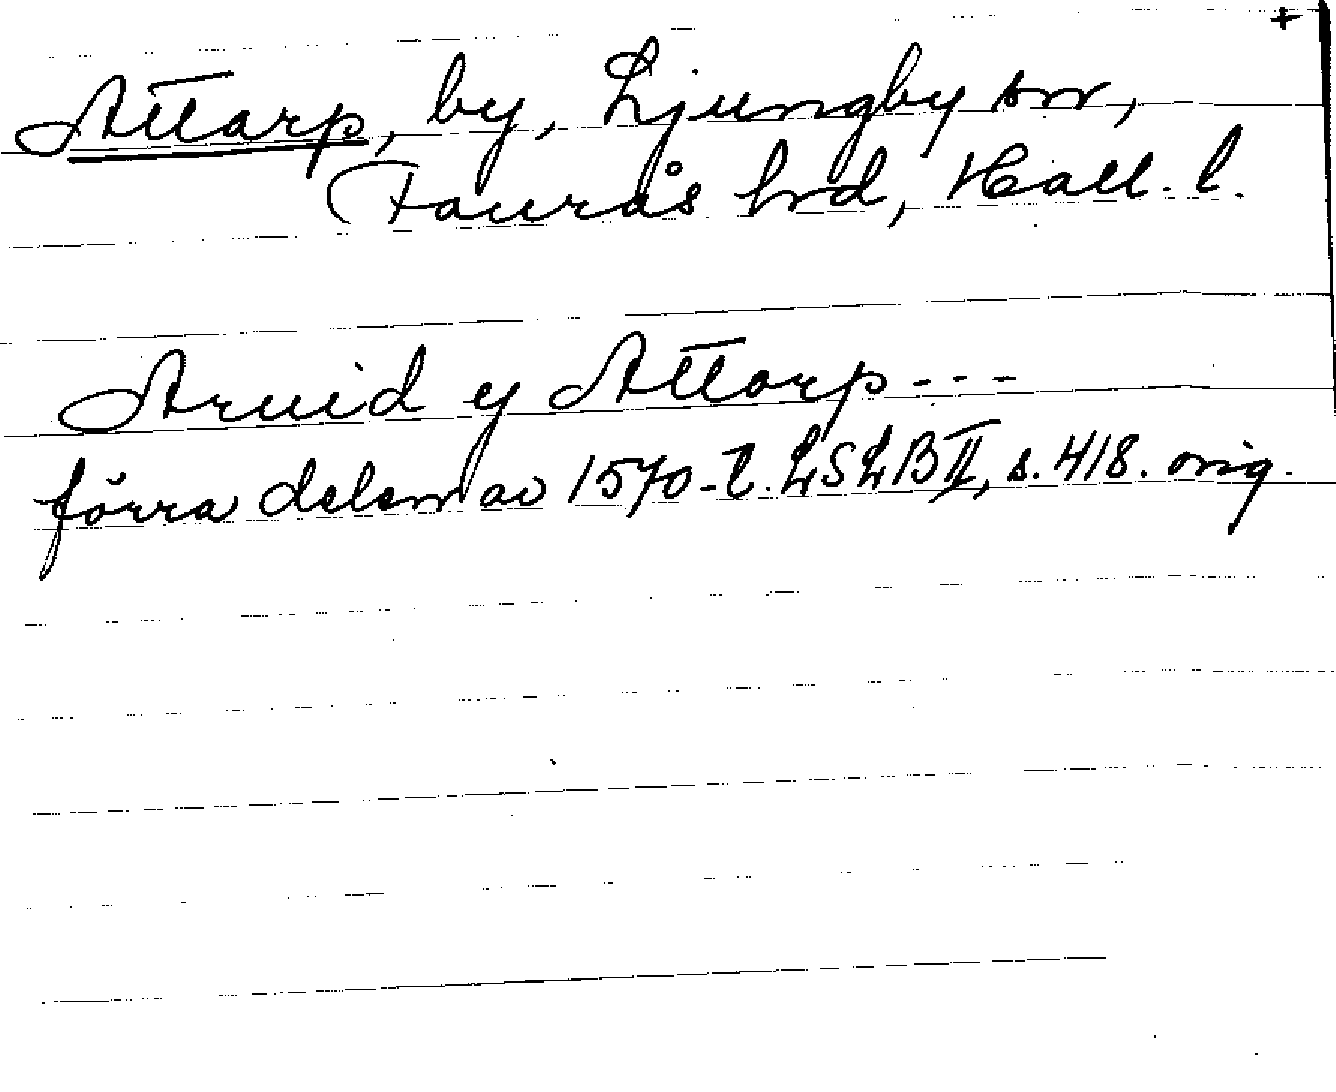 +
Attarp, by, Ljungby sn,
Faurås hrd, Hall. l.
Arvid y Attarp - - -
förra delen av 1570-t. LSLB II, s. 418. orig.